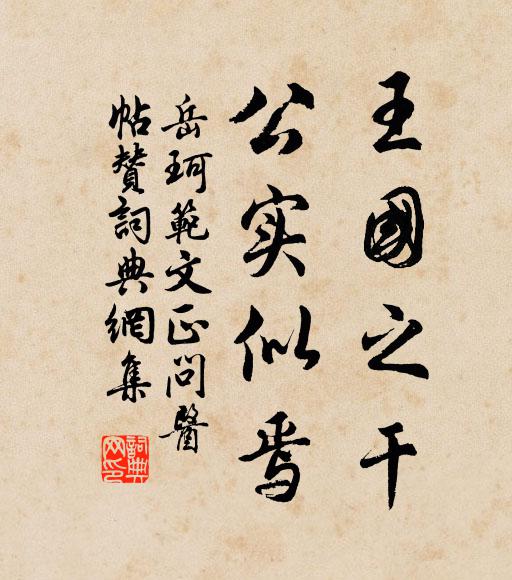 王國之干
公实似焉
岳珂範文正問醫
帖贊詞典網集
詞典网印